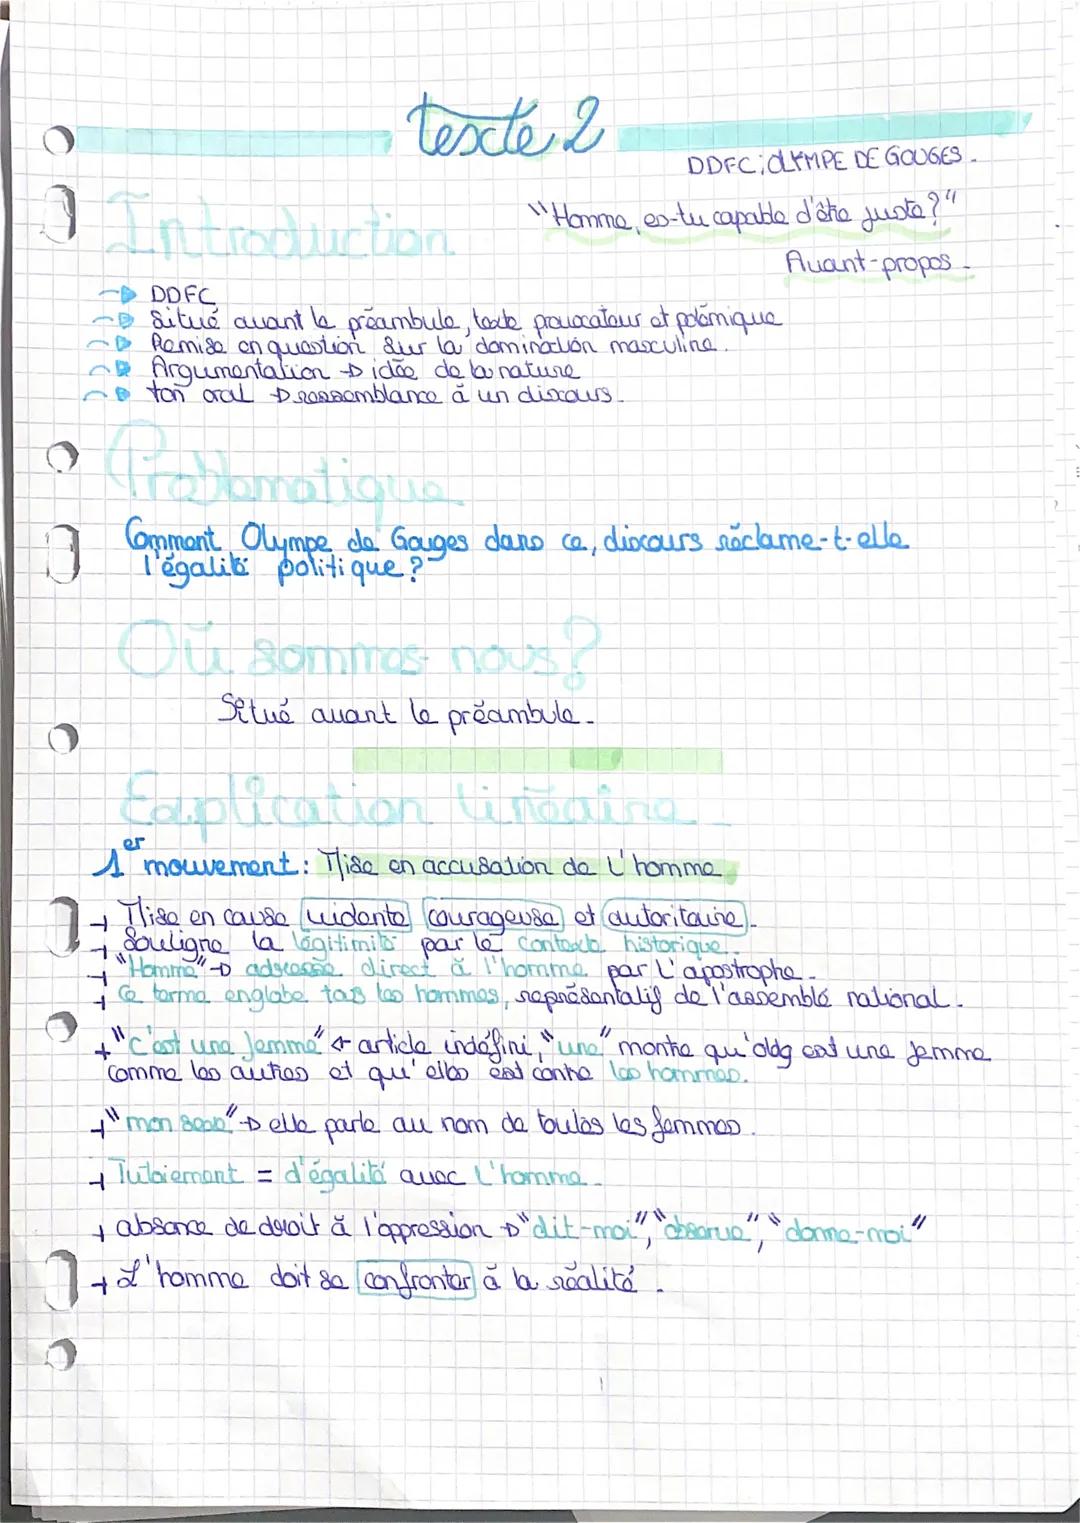 texte 2
DDFC; OLYMPE DE GOUGES.
"Homme, es-tu capable d'être juste?"
Avant-propos.
Introduction
→ DDFC
→ Situé avant le préambule, texte provocateur et polémique
→ Remise en question sur la domination masculine.
→ Argumentation → idée de la nature
→ ton oral → ressemblance à un discours.
Problematique
Comment Olympe de Gouges dans ce, discours réclame-t-elle
l'égalité politique?
Où sommes nous?
Situé avant le préambule.
Explication linéaire
1er mouvement: Mise en accusation de l'homme
→ Mise en cause courageuse et autoritaire.
→ Souligne la légitimité par le contexte historique.
→ "Homme" → direct à l'homme par l'apostrophe.
→ Ce terme englobe tous les hommes, représentatif de l'assemblé national.
→ "C'est une femme" ← article indéfini, "une" montre qu'oldg est une femme
comme les autres et qu'elles est contre les hommes.
→ "mon sexe" → elle parle au nom de toutes les femmes.
→ Tutoiement = d'égalité avec l'homme.
→ absence de droit à l'oppression → "dit-moi", "observe", "donne-moi"
→ L'homme doit se confronter à la réalité.